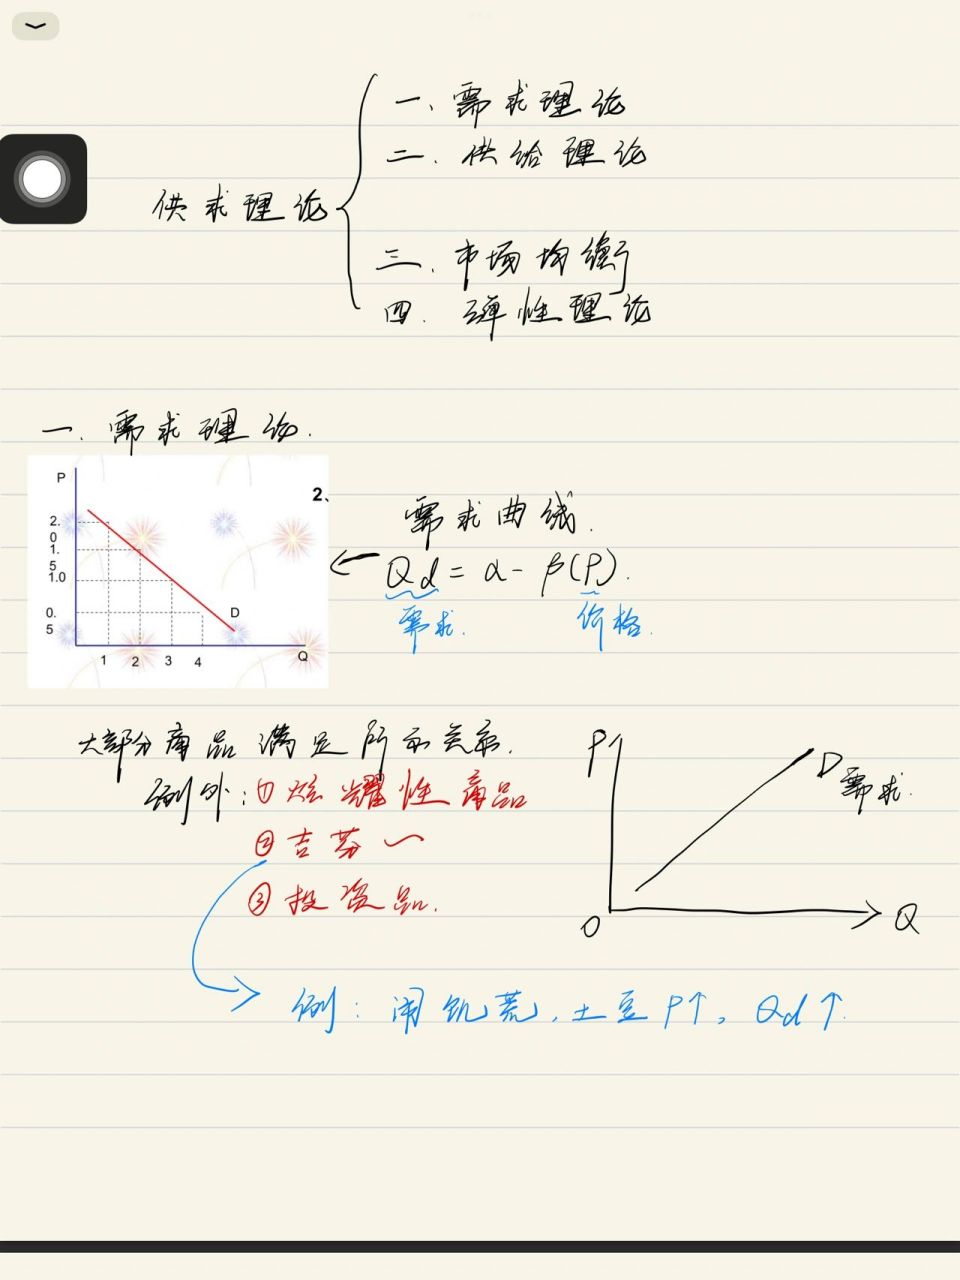 一、需求理论
二、供给理论
供求理论
三、市场均衡
四、弹性理论
一、需求理论.
P
2、
2.
0
1.
5
1.0
0.
5
D
1 2 3 4
Q
需求曲线.
Qd = α - β(P).
需求. 价格.
大部分商品满足所示关系.
例外:①炫耀性商品
②吉芬~
③投资品.
P
D
需求.
O
Q
例:闹饥荒,土豆P↑,Qd↑.